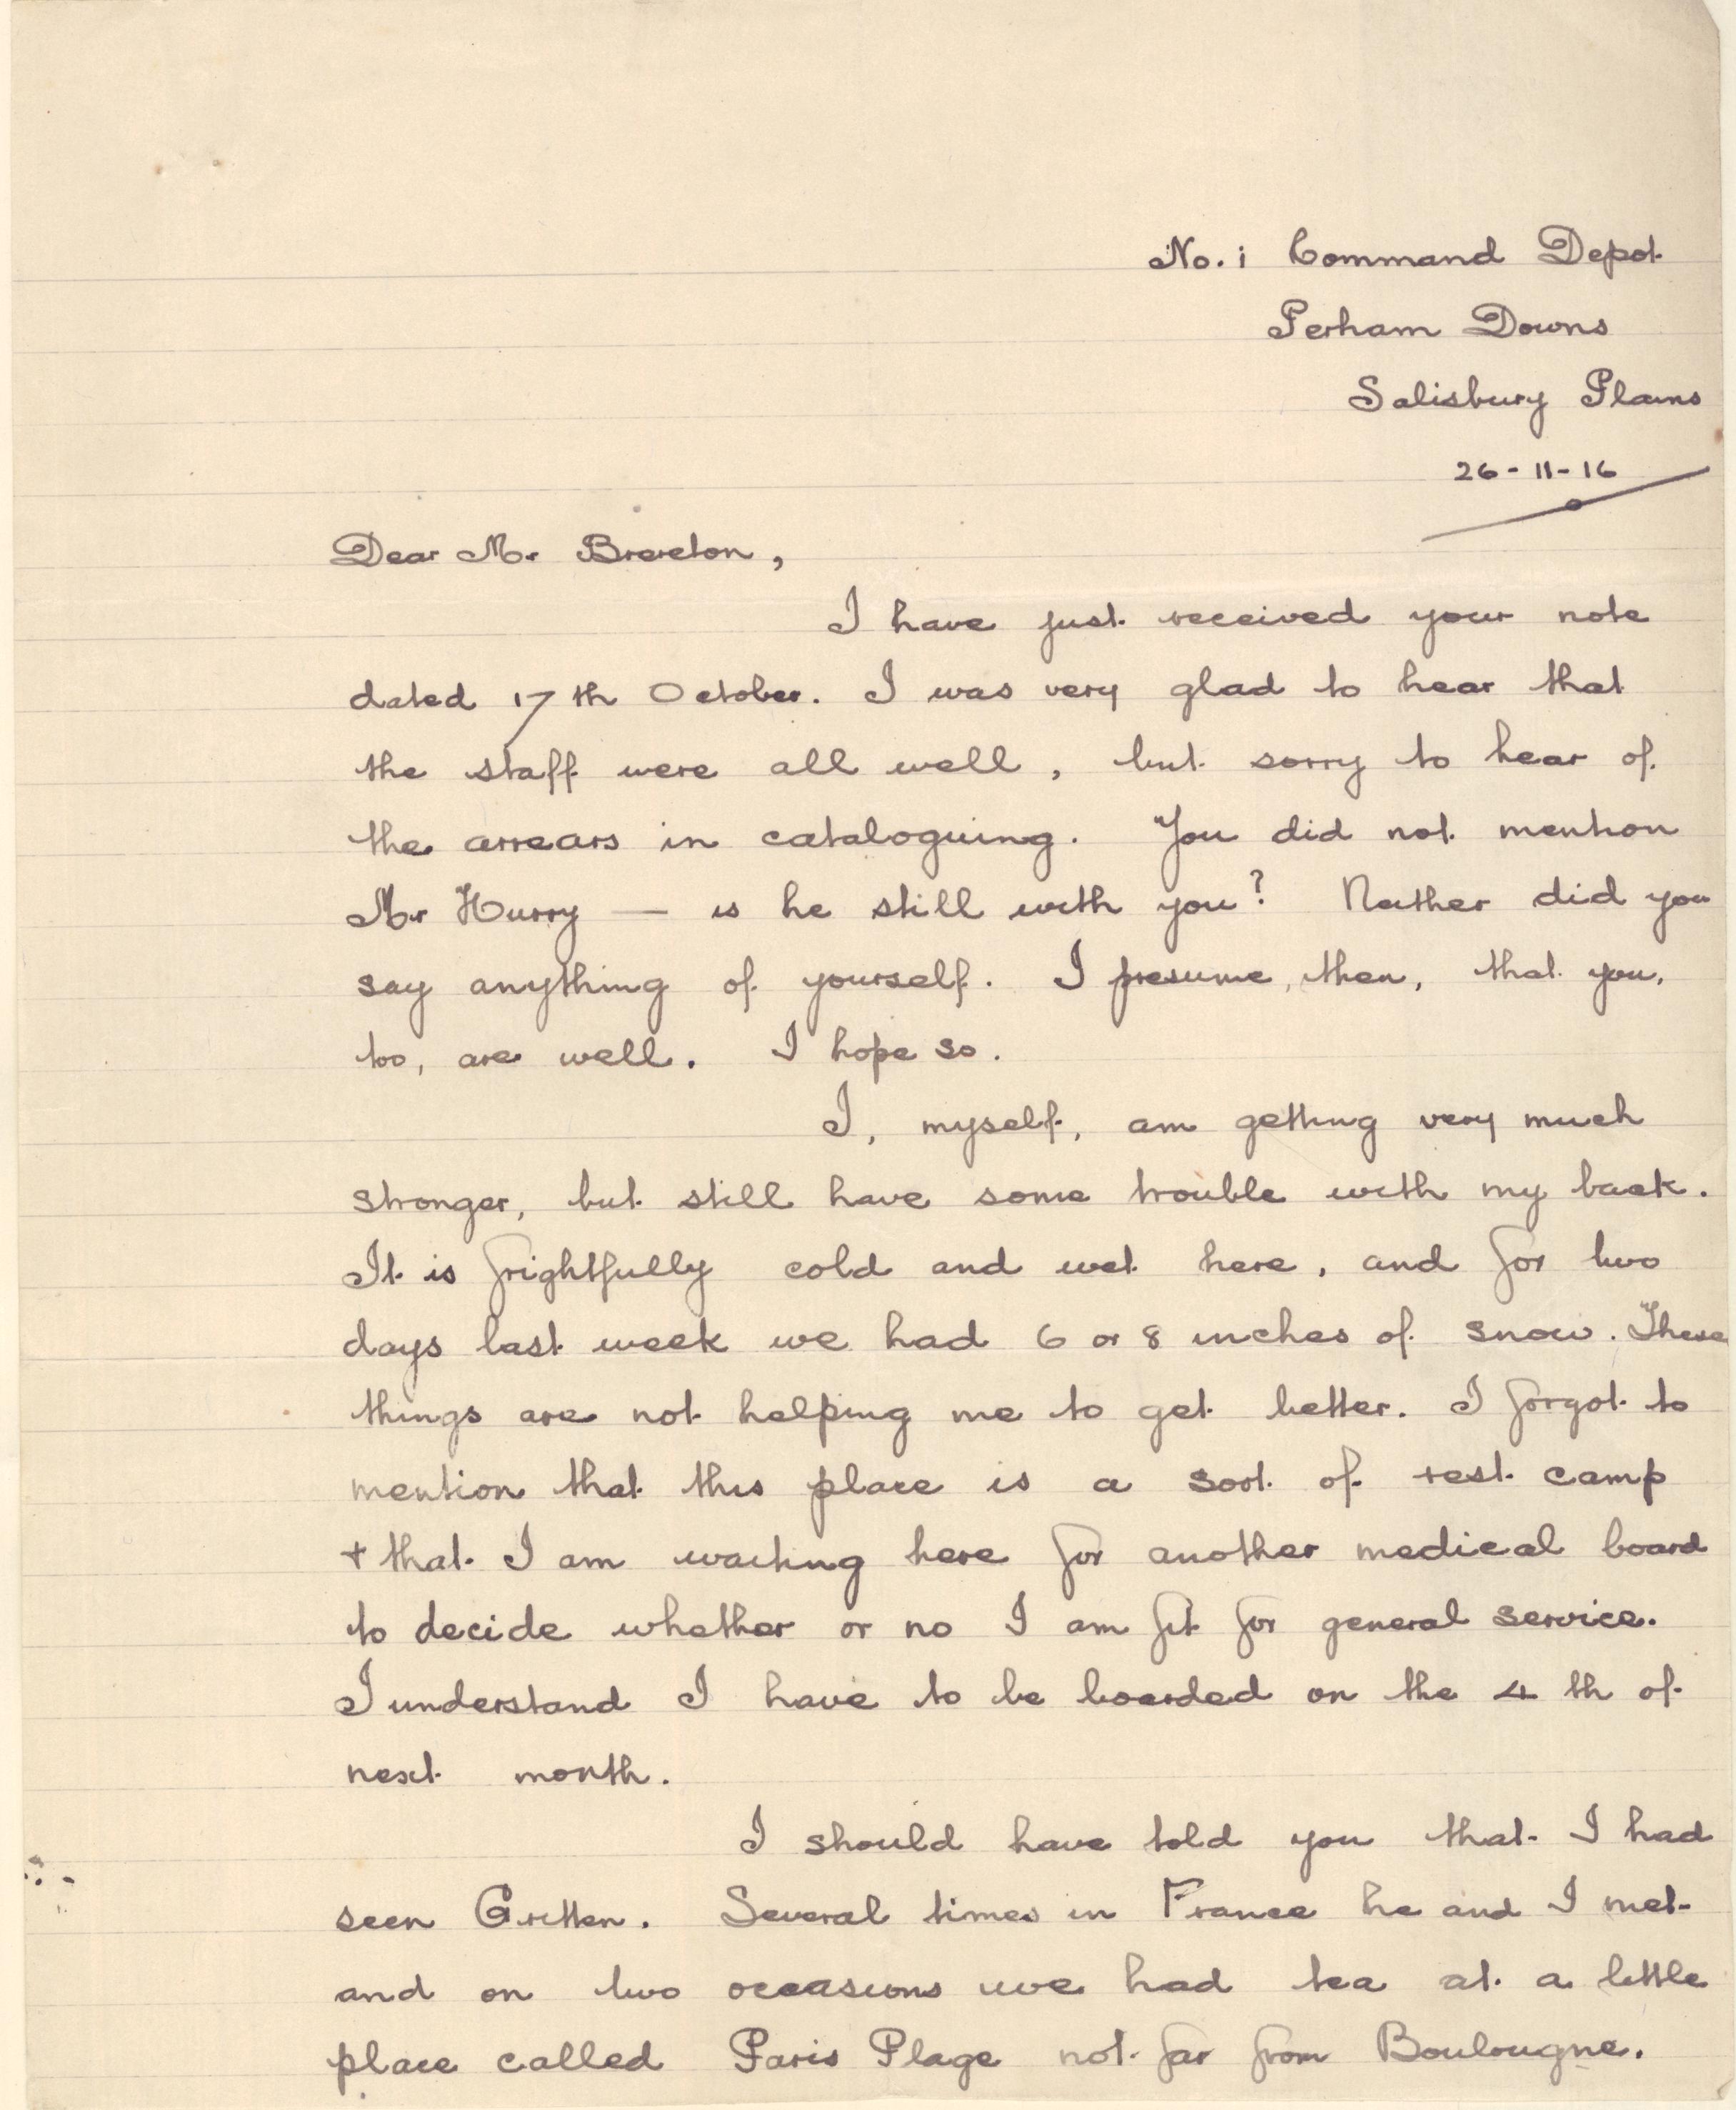 No. 1 Command Depot
Perham Downs
Salisbury Plains
26-11-16
Dear Mr Brereton,
I have just received your note
dated 17th October. I was very glad to hear that
the staff were all well, but sorry to hear of
the arrears in cataloguing. You did not mention
Mr Hurry — is he still with you? Neither did you
say anything of yourself. I presume, then, that you,
too, are well. I hope so.
I, myself, am getting very much
stronger, but still have some trouble with my back.
It is frightfully cold and wet here, and for two
days last week we had 6 or 8 inches of snow. These
things are not helping me to get better. I forgot to
mention that this place is a sort of rest camp
+ that I am waiting here for another medical board
to decide whether or no I am fit for general service.
I understand I have to be boarded on the 4th of
next month.
I should have told you that I had
seen Gritten. Several times in France he and I met
and on two occasions we had tea at a little
place called Paris Plage not far from Boulougne.